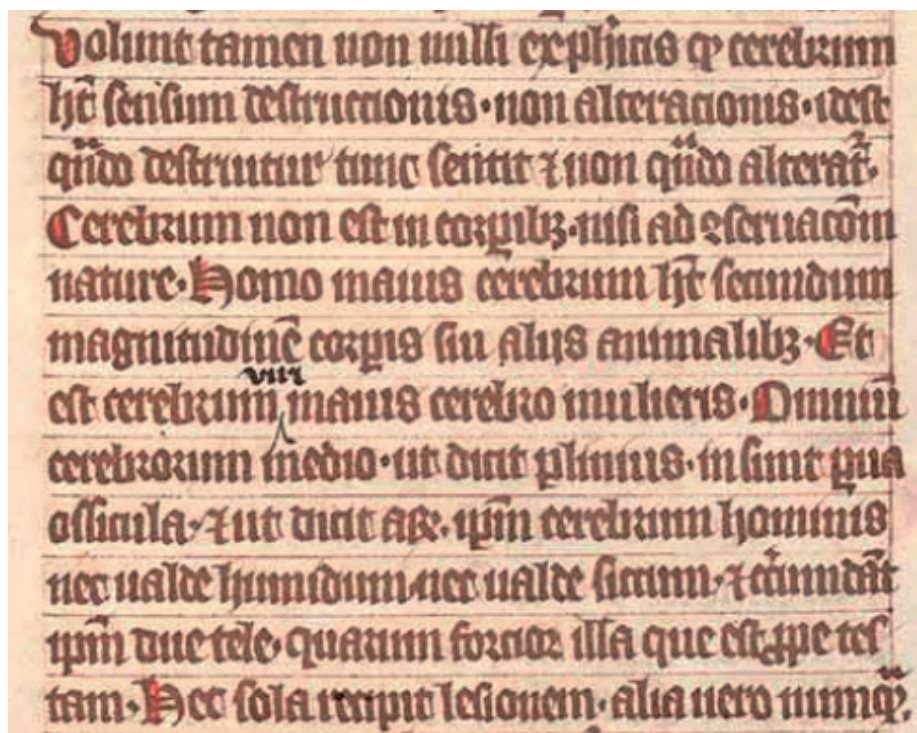 Volunt tamen non nulli ex phisicis qͥ cerebrum
hꝫt sensum destructionis·non alteracionis·idest
qn̄do destruitur tunc sentit ⁊ non qn̄do alterat̄·
Cerebrum non est in corꝑibꝫ·nisi ad ꝯseruacōm
nature·Homo maius cerebrum hꝫt secundum
magnitudinē corꝑis sui aliis animalibꝫ·Et
viri
est cerebrum maius cerebro mulieris·Omniū
cerebrorum medio·ut dicit plinius·insunt ꝑua
ossicula·⁊ ut dicit ar̄·ipm̄ cerebrum hominis
nec ualde humidum nec ualde siccum·⁊ cͥcumdāt
ipm̄ due tele·quarum forcior illa que est ꝓpe tes
tam·Hec sola recipit lesionem·alia uero numqͣ.